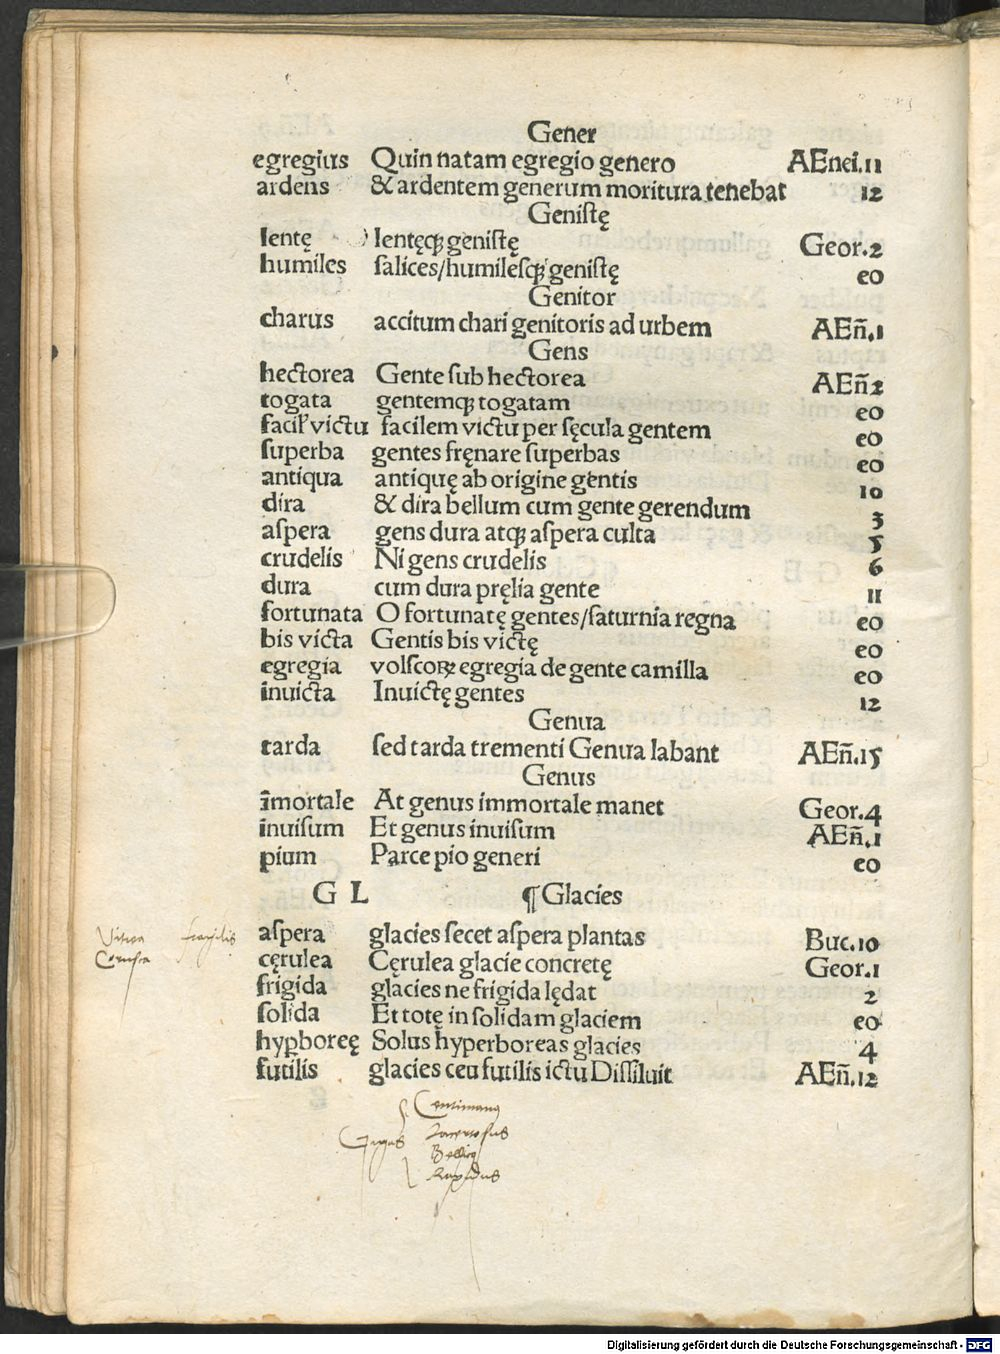 Gener
egregius Quin natam egregio genero AEnei.11
ardens & ardentem generum moritura tenebat 12
Genistę
lentę lentęqꝫ genistę Geor.2
humiles salices/humilesqꝫ genistę eo
Genitor
charus accitum chari genitoris ad urbem AEñ.1
Gens
hectorea Gente sub hectorea AEñ2
togata gentemqꝫ togatam eo
facil' victu facilem victu per sęcula gentem eo
superba gentes fręnare superbas eo
antiqua antiquę ab origine gentis 10
dira & dira bellum cum gente gerendum 3
aspera gens dura atqꝫ aspera culta 5
crudelis Ni gens crudelis 6
dura cum dura pręlia gente 11
fortunata O fortunatę gentes/saturnia regna eo
bis victa Gentis bis victę eo
egregia volscoꝝ egregia de gente camilla eo
inuicta Inuictę gentes 12
Genua
tarda sed tarda trementi Genua labant AEñ.15
Genus
īmortale At genus immortale manet Geor.4
inuisum Et genus inuisum AEñ.1
pium Parce pio generi eo
G L ¶Glacies
Vitrea fragilis aspera glacies secet aspera plantas Buc.10
cęrulea Cęrulea glacie concretę Geor.1
frigida glacies ne frigida lędat 2
solida Et totę in solidam glaciem eo
hyꝑboreę Solus hyperboreas glacies 4
futilis glacies ceu futilis ictu Dissiluit AEñ.12
Centimanus
Gygas
Lacertosus
Rapidus
Digitalisierung gefördert durch die Deutsche Forschungsgemeinschaft - DFG